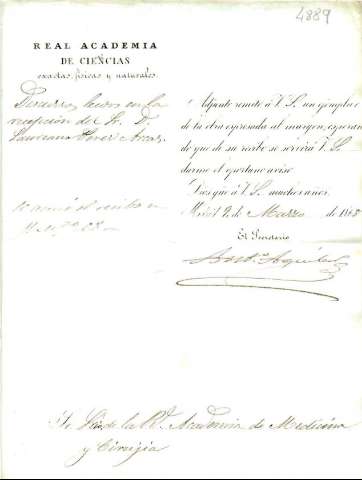 4889
REAL ACADEMIA
DE CIENCIAS
exactas, físicas y naturales.
Discursos leidos en la
recepcion del Sr. D.
Laureano Perez Arcas.
Adjunto remito á V. S. un ejemplar
de la obra espresada al margen, esperan
do que de su recibo se servirá V. S.
darme el oportuno aviso.
Dios gue á V. S. muchos años.
Madrid 9 de Marzo de 1868
El Secretario
Anto. Aguilar
Sr. Srio. de la Rl. Academia de Medicina
y Cirujía